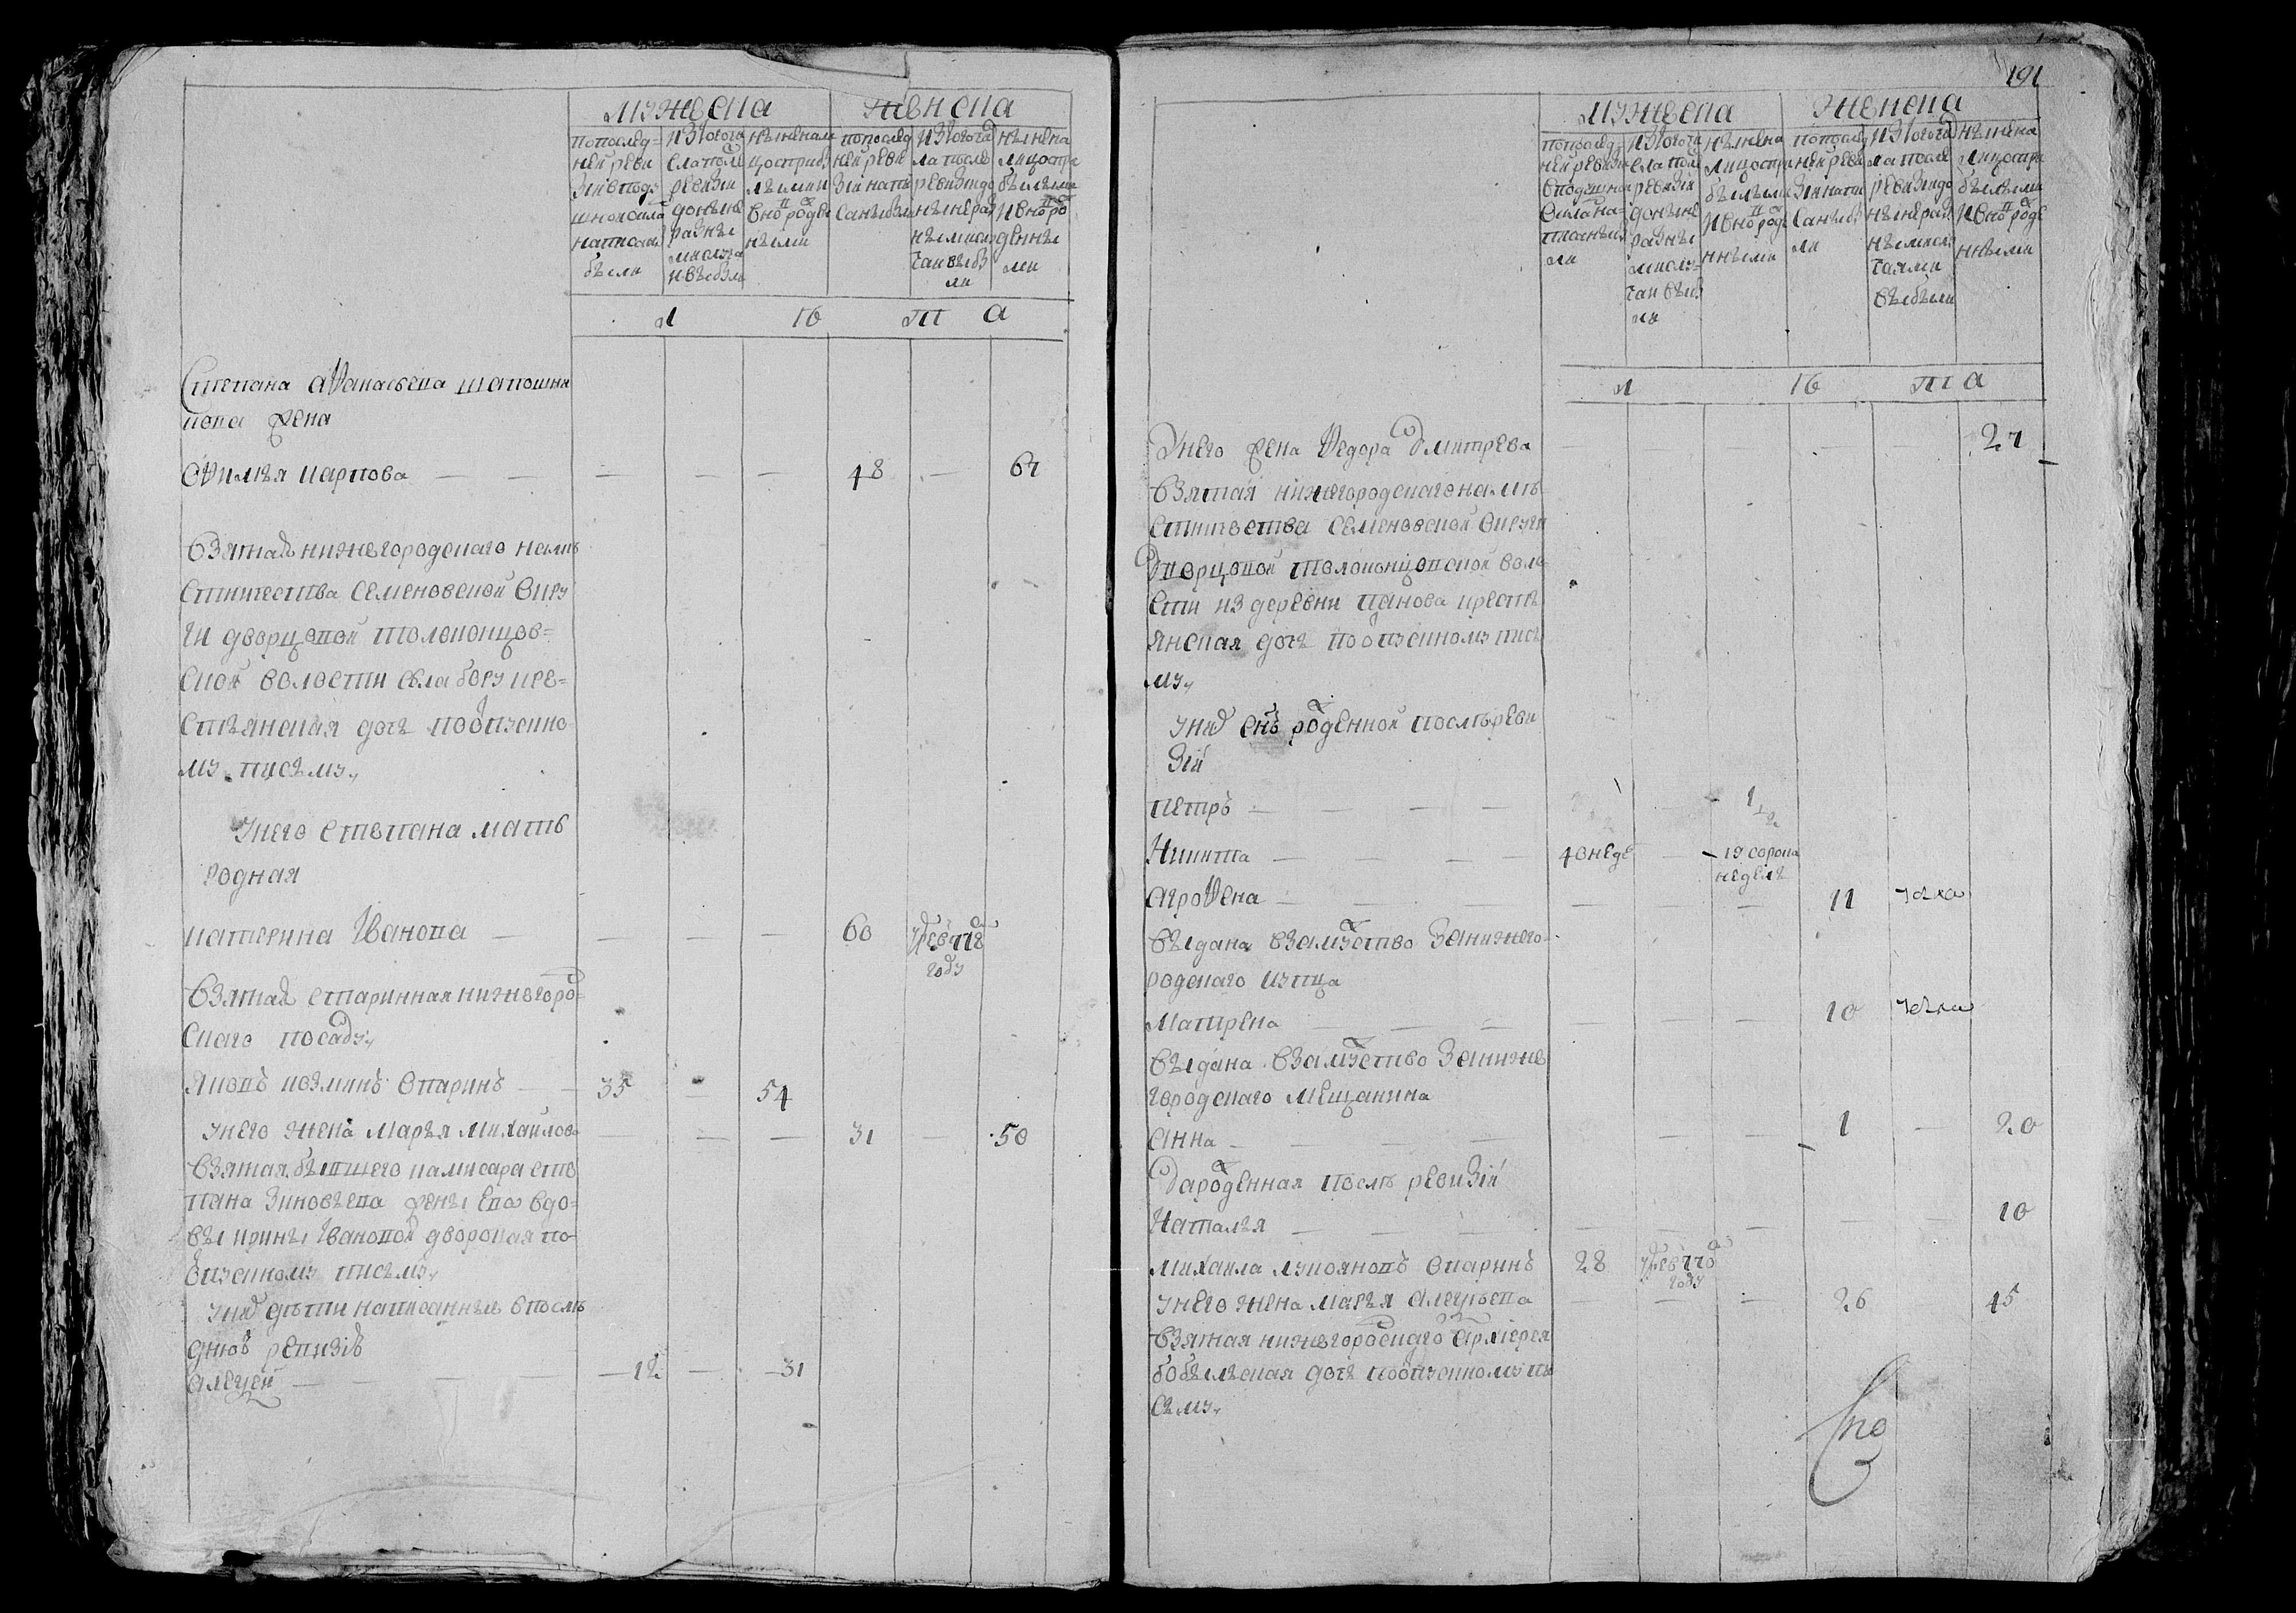 мужеска женска
попослед=
ней реви
зии вподу
шной окла
написаны
были
изтого чи
сла после
ревизии
доныне
разным
случа
и выбыли
ныне налицо
с прибы
лыми и
вновь рожден
ными
попослед
ней реви
зии напи
саны были
изтого чис
ла после
ревизии до
ныне раз
ными слу
чаи выбы
ли
ныне на
лицо с при
былыми
и вновь ро
жденны
ми
л ѣ т а
Степана Афанасьева шапошни
кова жена
Офимья карпова — — — — — 48 — 67
Взятая нижегородскаго намѣ
стничества Семеновской окру
ги дворцовой толоконцов=
ской волости села бору кре=
стьянская дочь поотпускно
му письму,
унего степана мать
родная
катерина Иванова — — — — 60 умре в 778
году
взятая старинная нижегород=
скаго посаду,
Яковъ козминъ Опаринъ — 35 — 54
унего жена Марья Михайлова — — — 31 — 50
взятая бывшего камисара сте
пана Зиновьева жены Ево вдо=
вы ирины Ивановой дворовая по
отпускному письму,
уних дѣти написанныя впослѣ
дней ревизіи
алексей — — — 12 — 31
191
мужеска женска
попослед
ней ревизи
вподушной
окла на=
писаны
ли
изтого чи
сла после
ревизии
доныне
разным
случа=
чаи выбы
ли
ныне на
лицо с при
былыми
и вновь роже
нными
попослед
ней реви
зии напи
саны бы
ли
изтого чис
ла после
ревизии до
ныне раз
ными слу
чаями
выбыли
ныне на
лицо с при
былыми
и вновь роже
нными
л ѣ т а
Унего жена Федора дмитрева — — — — 27
взятая нижегородскаго намѣ
стничества Семеновской округи
дворцовой толоконцовской воло
сти из деревни панова кресть
янская дочь поотпускному пись
му,
уних сынъ рожденной послѣ реви
зіи
петръ — — — — — — 1 1/2
Никита — — — — 40 неде — 19 сорока
недель
агрофена — — — — — — 11
выдана взамужство Занижего=
родскаго купца
Матрена — — — — — — 10
выдана взамужство Заниже
городскаго мещанина
анна — — — — — — 1 — 20
Да рожденная послѣ ревизіи
Наталья — — — — — — — 10
михаила лукояновъ Опаринъ 28 умре в 770
году
унего жена марья алексѣева — — — 26 45
взятая нижегородскаго архиерея
бобыльская дочь поотпускному пи
сьму,